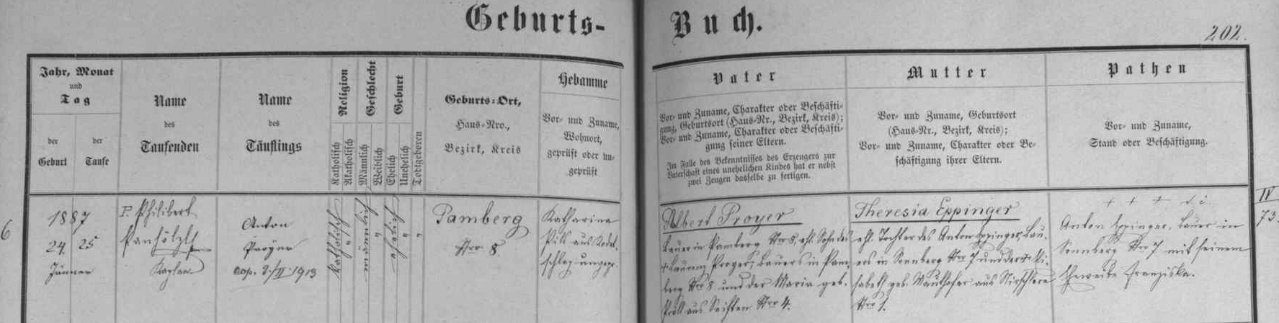 Geburts-
Buch.
202.
Jahr, Monat
und
Tag
der
Geburt
der
Taufe
Name
des
Taufenden
Name
des
Täuflings
Religion
Katholisch
Akatholisch
Geschlecht
Männlich
Weiblich
Geburt
Ehelich
Unehelich
Todtgeboren
Geburts-Ort,
Haus-Nro.,
Bezirk, Kreis
Hebamme
Vor- und Zuname,
Wohnort,
geprüft oder un-
geprüft
Vater
Vor- und Zuname, Charakter oder Beschäfti-
gung, Geburtsort (Haus-Nr., Bezirk, Kreis);
Vor- und Zuname, Charakter oder Beschäfti-
gung seiner Eltern.
Im Falle des Bekenntnisses des Erzeugers zur
Vaterschaft eines unehelichen Kindes hat er nebst
zwei Zeugen dasselbe zu fertigen.
Mutter
Vor- und Zuname, Geburtsort
(Haus-Nr., Bezirk, Kreis);
Vor- und Zuname, Charakter oder Be-
schäftigung ihrer Eltern.
Pathen
Vor- und Zuname,
Stand oder Beschäftigung.
6
1887
24 25
Jänner
P. Philibert
Panhölzl
Kaplan
Anton
cop. 1913
katholisch
männlich
ehelich
Pamberg
Nro 8
Katharina
Albert Proyer
Bauer in Pamberg Nro 8, ehl. Sohn des
Bauers in Pam-
berg Nro 8 und der Maria geb.
aus Nro 4.
Theresia Eppinger
ehl. Tochter des Anton Eppinger, Bau-
ers in Sonnberg Nro 7 und der Eli-
sabeth geb. Mauthofer aus
Nro 1.
+ + +
Anton Eppinger, Bauer in
Sonnberg Nro 7 mit seinem
Eheweibe Franziska.
IV
73